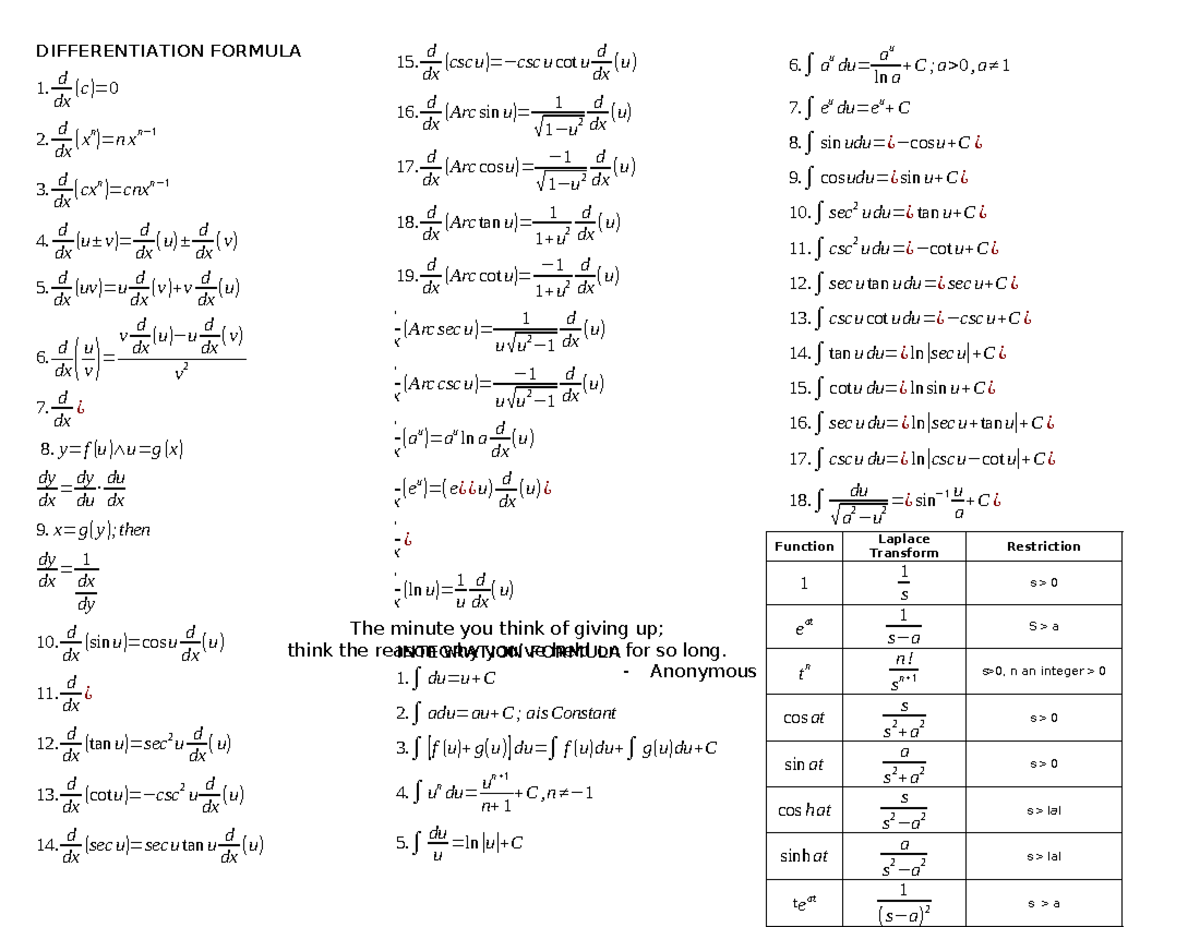 DIFFERENTIATION FORMULA
1. d/dx (c)=0
2. d/dx (xⁿ)=nxⁿ⁻¹
3. d/dx (cxⁿ)=cnxⁿ⁻¹
4. d/dx (u±v)=d/dx (u)±d/dx (v)
5. d/dx (uv)=u d/dx (v)+v d/dx (u)
6. d/dx (u/v)=(v d/dx (u)−u d/dx (v))/v²
7. d/dx ¿
8. y=f(u)∧u=g(x)
dy/dx=dy/du·du/dx
9. x=g(y);then
dy/dx=1/(dx/dy)
10. d/dx (sin u)=cos u d/dx (u)
11. d/dx ¿
12. d/dx (tan u)=sec²u d/dx (u)
13. d/dx (cot u)=−csc² u d/dx (u)
14. d/dx (sec u)=sec u tan u d/dx (u)
15. d/dx (csc u)=−csc u cot u d/dx (u)
16. d/dx (Arc sin u)=1/√(1−u²) d/dx (u)
17. d/dx (Arc cos u)=−1/√(1−u²) d/dx (u)
18. d/dx (Arc tan u)=1/(1+u²) d/dx (u)
19. d/dx (Arc cot u)=−1/(1+u²) d/dx (u)
(Arc sec u)=1/(u√(u²−1)) d/dx (u)
(Arc csc u)=−1/(u√(u²−1)) d/dx (u)
(aᵘ)=aᵘ ln a d/dx (u)
(eᵘ)=(e¿¿u) d/dx (u)¿
¿
(ln u)=1/u d/dx (u)
The minute you think of giving up;
think the reason why you've held on for so long.
- Anonymous
INTEGRATION FORMULA
1. ∫ du=u+C
2. ∫ adu=au+C; ais Constant
3. ∫ [f(u)+g(u)]du=∫ f(u)du+∫ g(u)du+C
4. ∫ uⁿ du=uⁿ⁺¹/(n+1)+C,n≠−1
5. ∫ du/u=ln|u|+C
6. ∫ aᵘ du=aᵘ/ln a+C;a>0,a≠1
7. ∫ eᵘ du=eᵘ+C
8. ∫ sin udu=¿−cos u+C¿
9. ∫ cosudu=¿sin u+C¿
10. ∫ sec² u du=¿ tan u+C¿
11. ∫ csc² u du=¿−cot u+C¿
12. ∫ sec u tan u du=¿sec u+C¿
13. ∫ csc u cot u du=¿−csc u+C¿
14. ∫ tan u du=¿ ln|sec u|+C¿
15. ∫ cot u du=¿ ln sin u+C¿
16. ∫ sec u du=¿ ln|sec u+tan u|+C¿
17. ∫ csc u du=¿ ln|csc u−cot u|+C¿
18. ∫ du/√(a²−u²)=¿ sin⁻¹ u/a+C¿
Function Laplace Transform Restriction
1 1/s s > 0
eᵃᵗ 1/(s−a) S > a
tⁿ n!/sⁿ⁺¹ s>0, n an integer > 0
cos at s/(s²+a²) s > 0
sin at a/(s²+a²) s > 0
cos hat s/(s²−a²) s > lal
sinh at a/(s²−a²) s > lal
teᵃᵗ 1/(s−a)² s > a